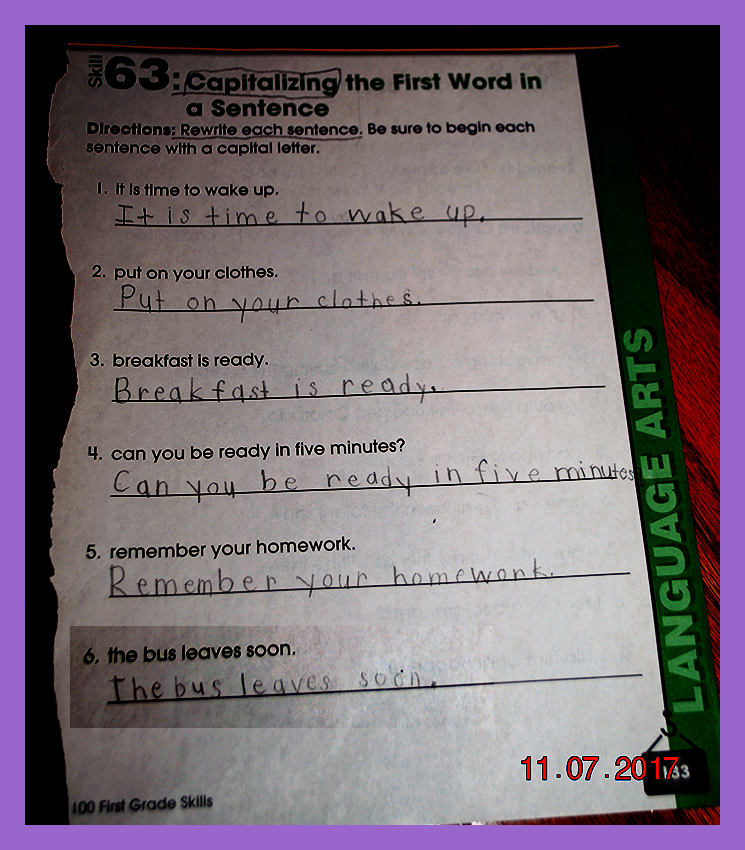 Skill 63: Capitalizing the First Word in
a Sentence
Directions: Rewrite each sentence. Be sure to begin each
sentence with a capital letter.
1. it is time to wake up.
It is time to wake up.
2. put on your clothes.
Put on your clothes.
3. breakfast is ready.
Breakfast is ready.
4. can you be ready in five minutes?
Can you be ready in five minutes
5. remember your homework.
Remember your homework.
6. the bus leaves soon.
The bus leaves soon.
LANGUAGE ARTS
11.07.2017
100 First Grade Skills